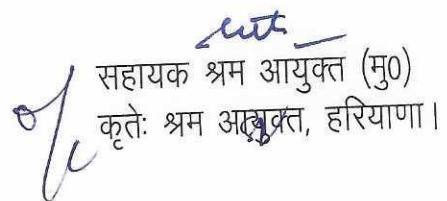 सहायक श्रम आयुक्त (मु0)
कृतेः श्रम आयुक्त, हरियाणा।